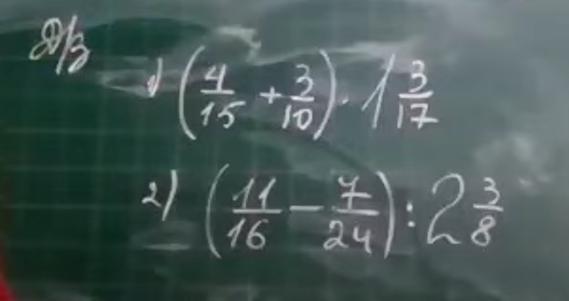 Д/з
1) (4/15 + 3/10) · 1 3/17
2) (11/16 − 7/24) : 2 3/8